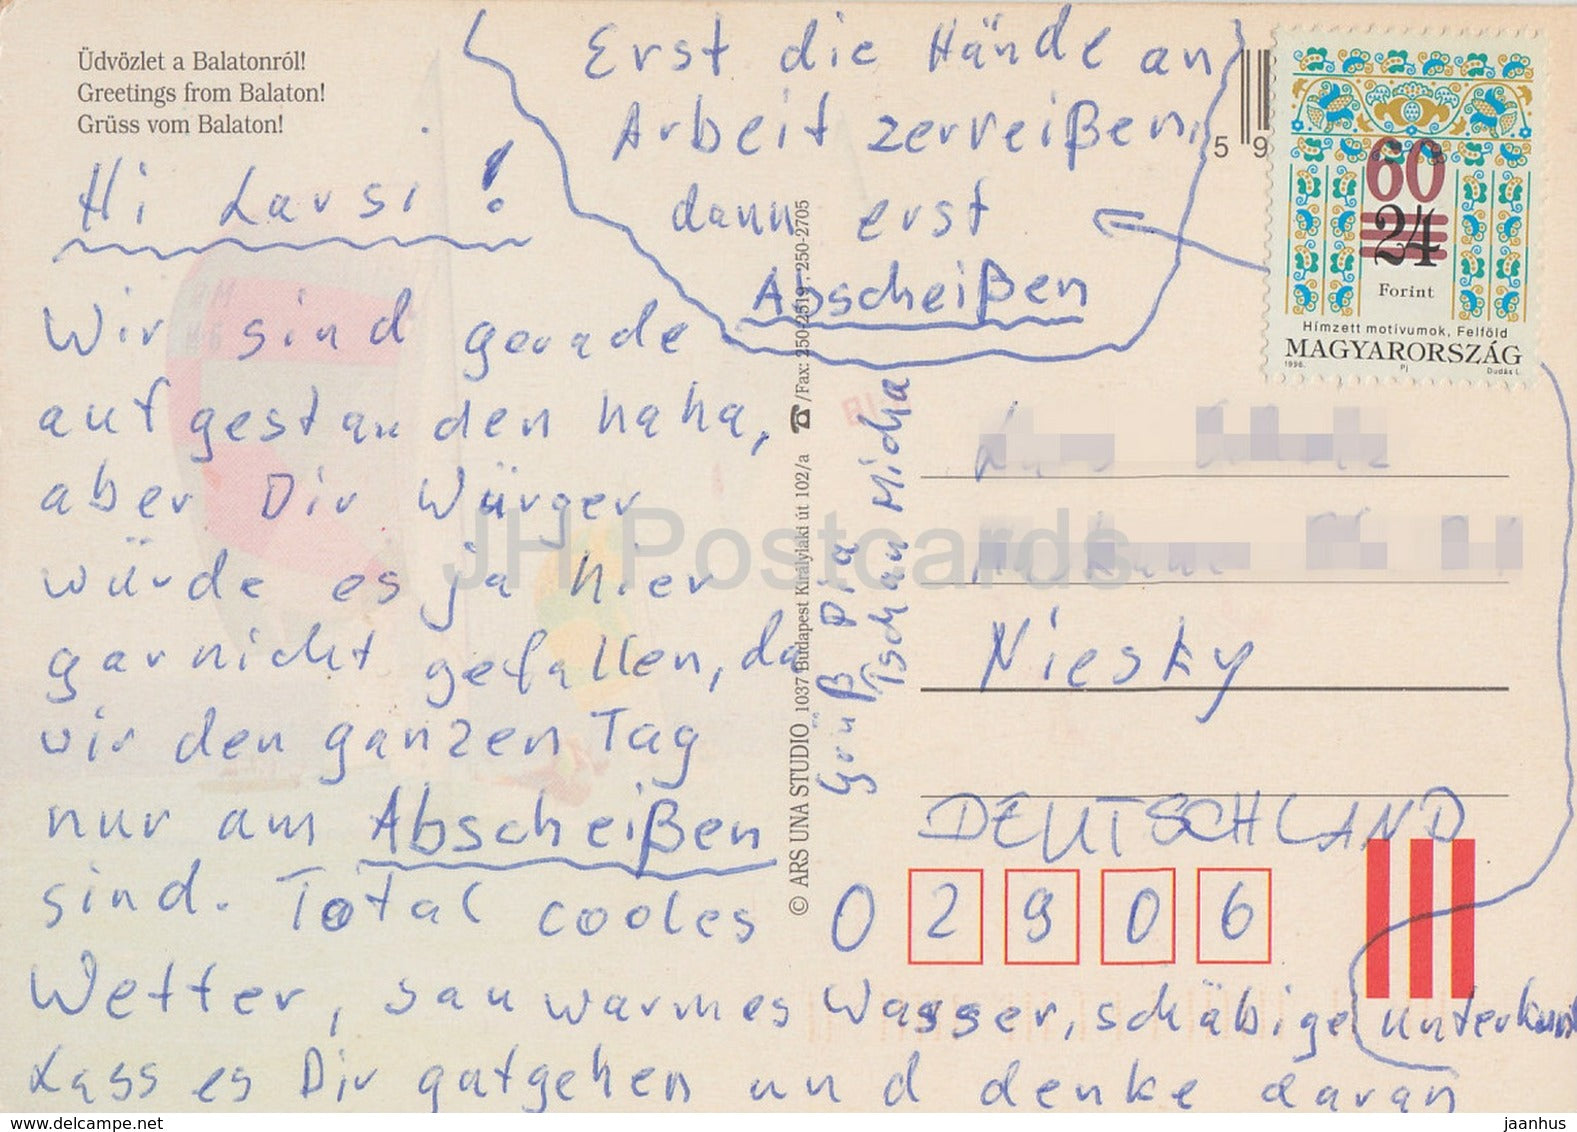 Üdvözlet a Balatonról!
Greetings from Balaton!
Grüss vom Balaton!
Hi Larsi!
Wir sind gerade
aufgestanden haha,
aber Dir Würger
würde es ja hier
garnicht gefallen, da
wir den ganzen Tag
nur am Abscheißen
sind. Total cooles
Wetter, sauwarmes Wasser, schäbige Unterkunft
Lass es Dir gutgehen und denke daran
Erst die Hände an
Arbeit zerreißen,
dann erst
Abscheißen
Gruß Pia
Tschau Micha
© ARS UNA STUDIO 1037 Budapest Királylaki út 102/a ☎/Fax: 250-2519, 250-2705
5 9
60
24
Forint
Hímzett motívumok, Felföld
MAGYARORSZÁG
1996. Pj Dudás L.
Niesky
DEUTSCHLAND
0 2 9 0 6
JH Postcards
www.delcampe.net
jaanhus